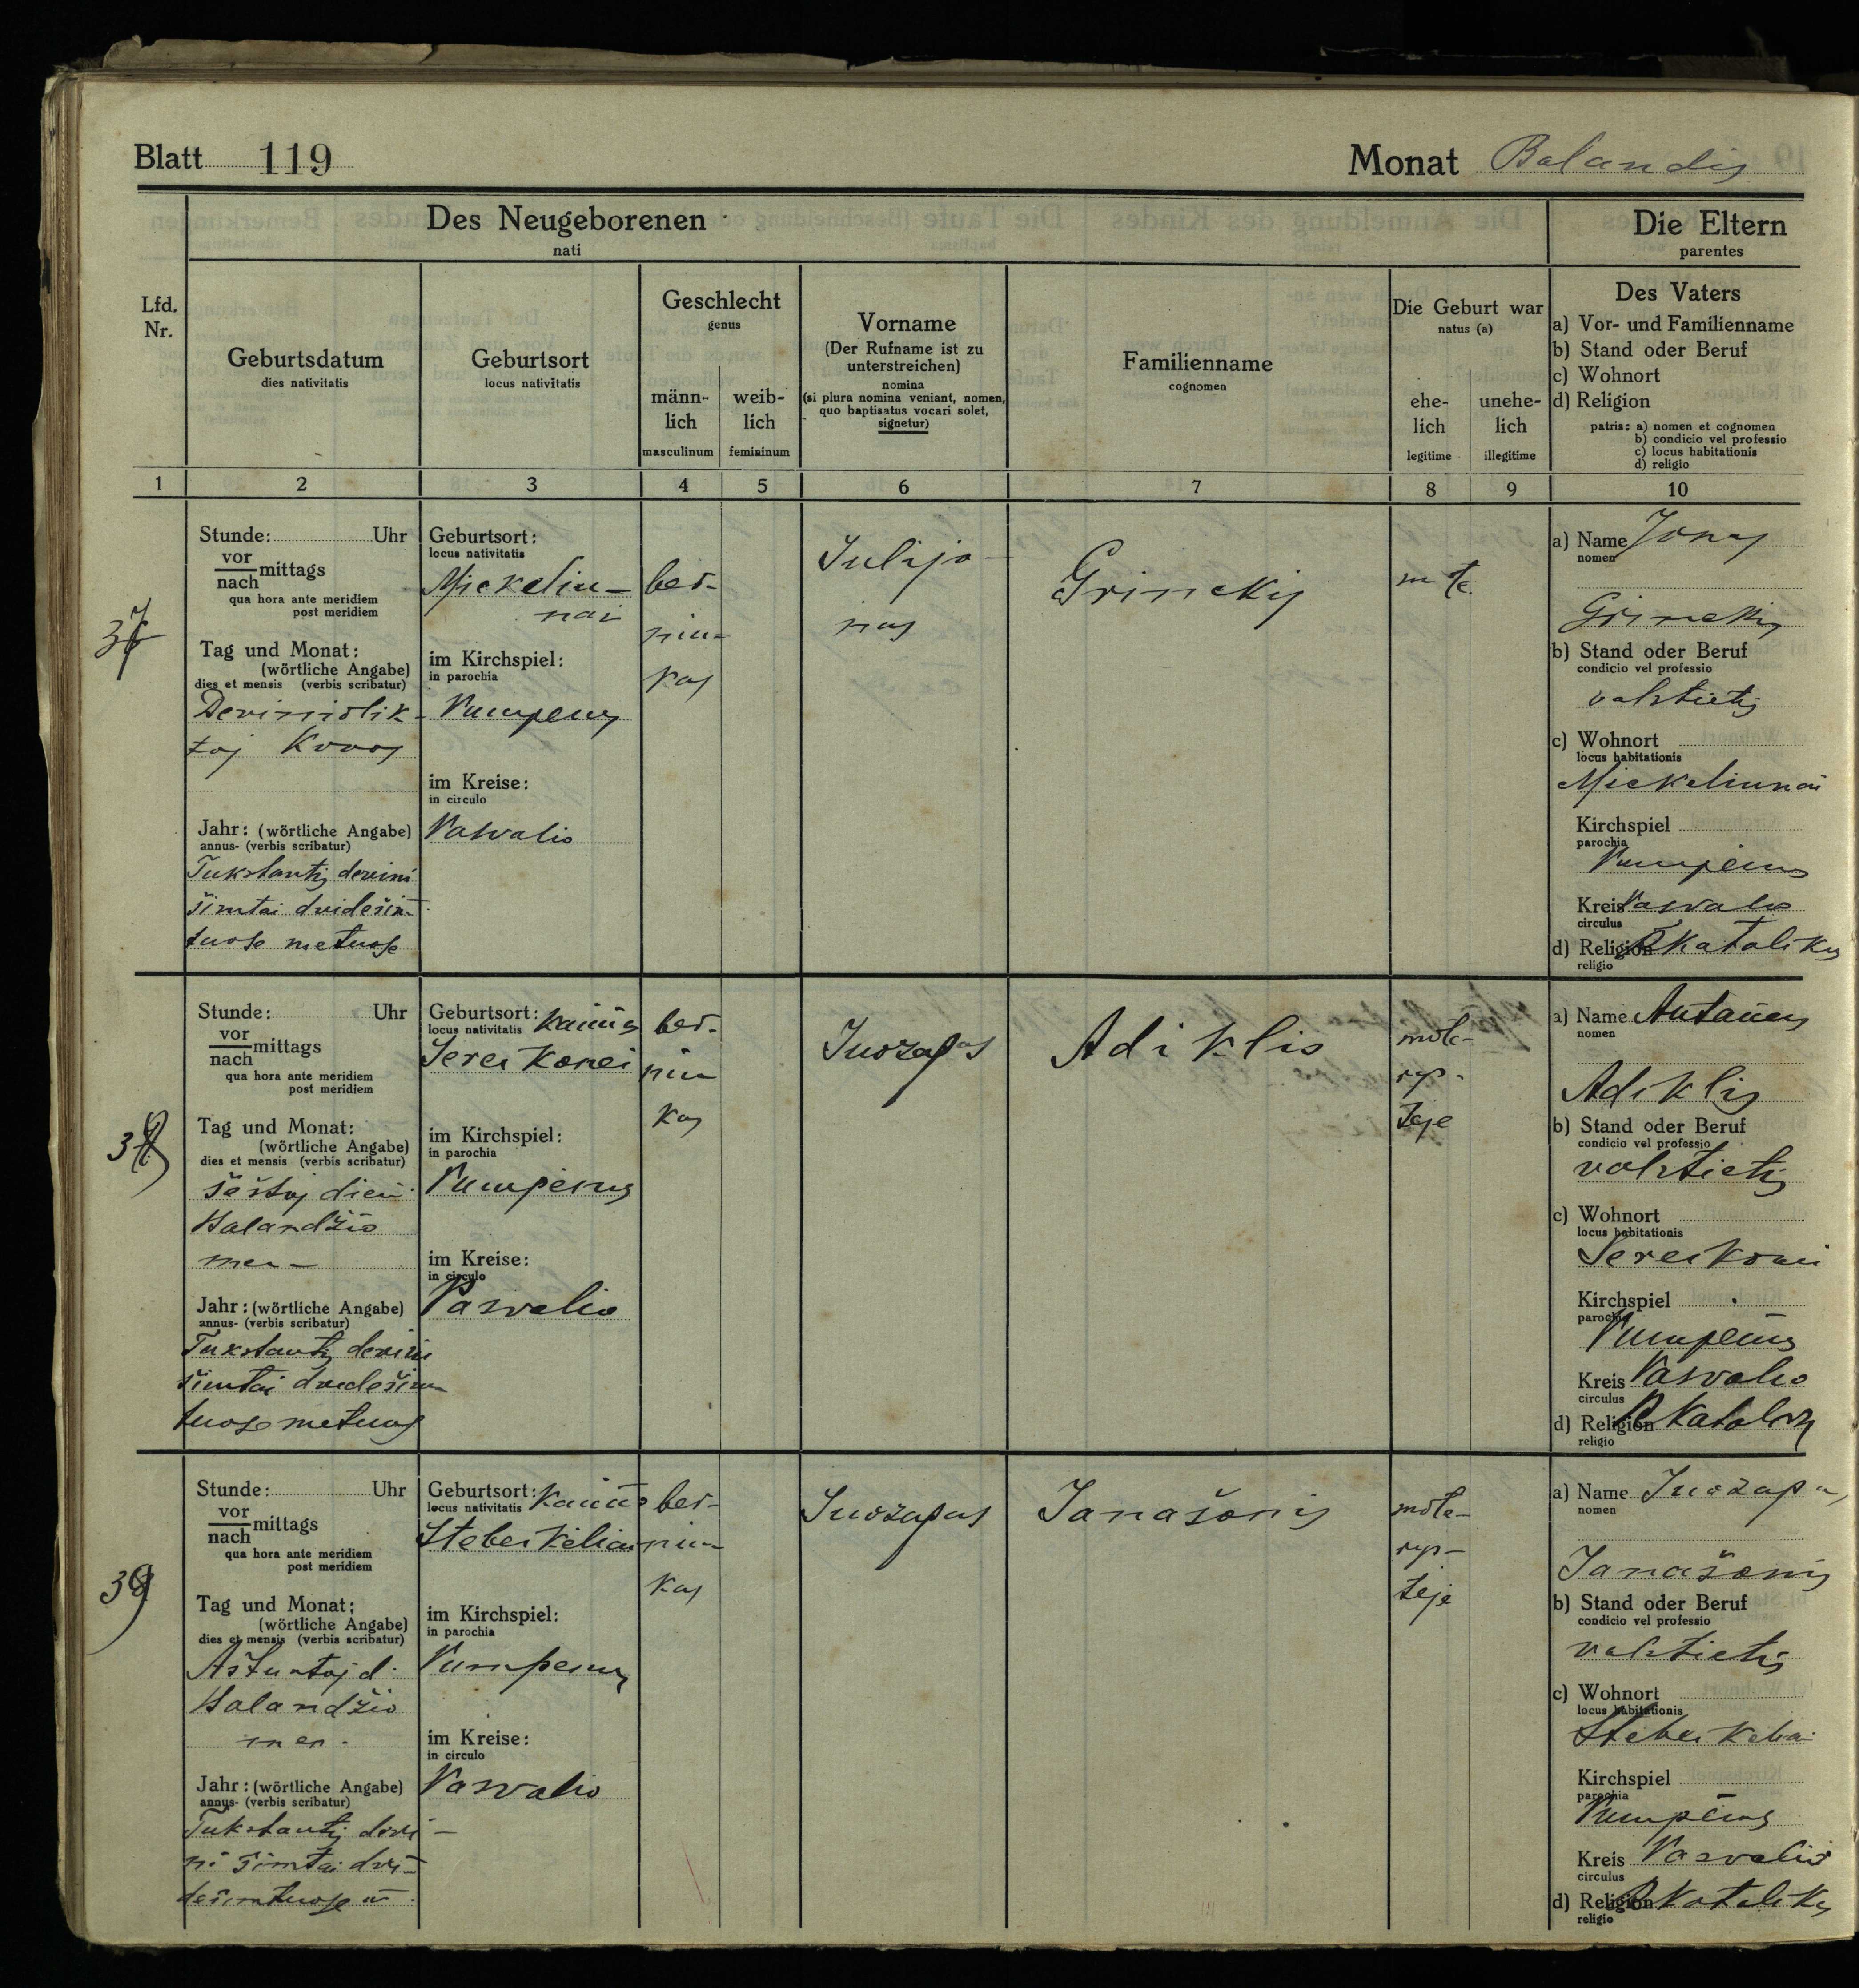 Blatt 119
Monat Balandis
Des Neugeborenen
nati
Die Eltern
parentes
Lfd.
Nr.
Geburtsdatum
dies nativitatis
Geburtsort
locus nativitatis
Geschlecht
genus
männ-
lich
masculinum
weib-
lich
femininum
Vorname
(Der Rufname ist zu
unterstreichen)
nomina
(si plura nomina veniant, nomen,
quo baptisatus vocari solet,
signetur)
Familienname
cognomen
Die Geburt war
natus (a)
ehe-
lich
legitime
unehe-
lich
illegitime
Des Vaters
a) Vor- und Familienname
b) Stand oder Beruf
c) Wohnort
d) Religion
patris: a) nomen et cognomen
b) condicio vel professio
c) locus habitationis
d) religio
1 2 3 4 5 6 7 8 9 10
37
Stunde: Uhr
vor
nach mittags
qua hora ante meridiem
post meridiem
Tag und Monat:
(wörtliche Angabe)
dies et mensis (verbis scribatur)
Deviniolik-
toj Kovos
Jahr: (wörtliche Angabe)
annus- (verbis scribatur)
Tukstantis devini
šimtai dvidešim-
tuose metuose
Geburtsort:
locus nativitatis
Mickeliu-
nai
im Kirchspiel:
in parochia
Pumpenų
im Kreise:
in circulo
Pasvalio
ber-
niu-
kas
Julijo-
nas
Grinckis
mote
a) Name Jonas
nomen
Grinckis
b) Stand oder Beruf
condicio vel professio
valstietis
c) Wohnort
locus habitationis
Mickeliunai
Kirchspiel
parochia
Pumpenų
Kreis Pasvalio
circulus
d) Religion R Katalikas
religio
38
Stunde: Uhr
vor
nach mittags
qua hora ante meridiem
post meridiem
Tag und Monat:
(wörtliche Angabe)
dies et mensis (verbis scribatur)
šeštoj dien.
Balandžio
men-
Jahr: (wörtliche Angabe)
annus- (verbis scribatur)
Tukstantis devini
šimtai dvidešim-
tuose metuose
Geburtsort: kaimas
locus nativitatis
Sereikonei
im Kirchspiel:
in parochia
Pumpenų
im Kreise:
in circulo
Pasvalio
ber-
niu-
kas
Juozapas
Adiklis
mote-
rys-
teje
a) Name Antanas
nomen
Adiklis
b) Stand oder Beruf
condicio vel professio
valstietis
c) Wohnort
locus habitationis
Sereikoni
Kirchspiel
parochia
Pumpenų
Kreis Pasvalio
circulus
d) Religion R Katalikas
religio
39
Stunde: Uhr
vor
nach mittags
qua hora ante meridiem
post meridiem
Tag und Monat;
(wörtliche Angabe)
dies et mensis (verbis scribatur)
Aštuntoj d.
Balandžio
men.
Jahr: (wörtliche Angabe)
annus- (verbis scribatur)
Tukstantis devi-
ni šimtai dvi-
dešimtuose m.
Geburtsort: kaimas
locus nativitatis
Stebeikeliai
im Kirchspiel:
in parochia
Pumpenų
im Kreise:
in circulo
Pasvalio
ber-
niu-
kas
Juozapas
Janašonis
mote-
rys-
teje
a) Name Juozapas
nomen
Janašonis
b) Stand oder Beruf
condicio vel professio
valstietis
c) Wohnort
locus habitationis
Stebeikeliai
Kirchspiel
parochia
Pumpenų
Kreis Pasvalio
circulus
d) Religion R Katalikas
religio